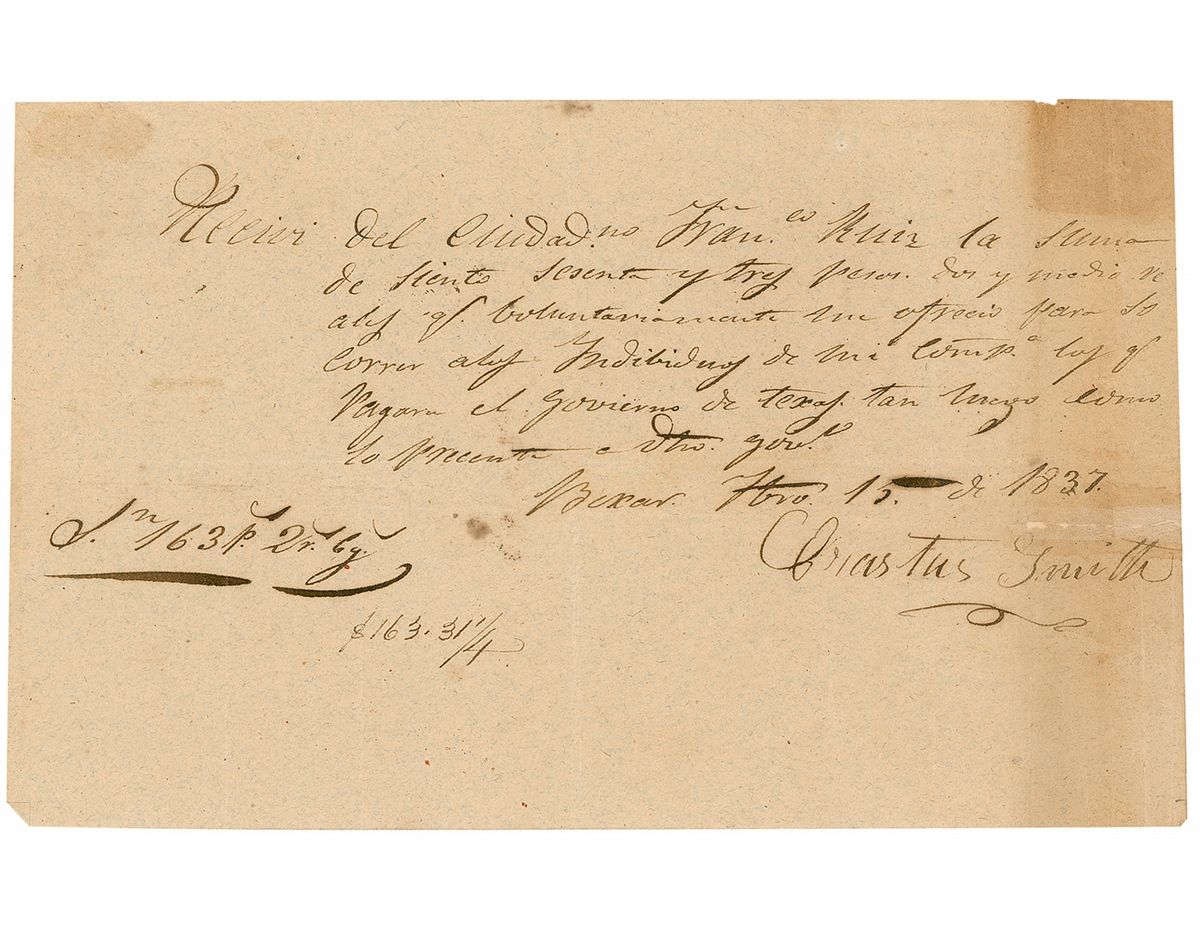 Recivi del Ciudad.no Fran.co Ruiz la suma
de siento sesenta y tres pesos. dos y medio re
ales q.e voluntariamente me ofrecio para so
correr a los Indibiduos de mi comp.a los q.e
Pagara el Govierno de texas. tan luego como
lo precente a dho. gov.o
Bexar. Fbro. 15. de 1837.
S.n 163 p.s 2 r.s
Erastus Smith
$163.31 1/4